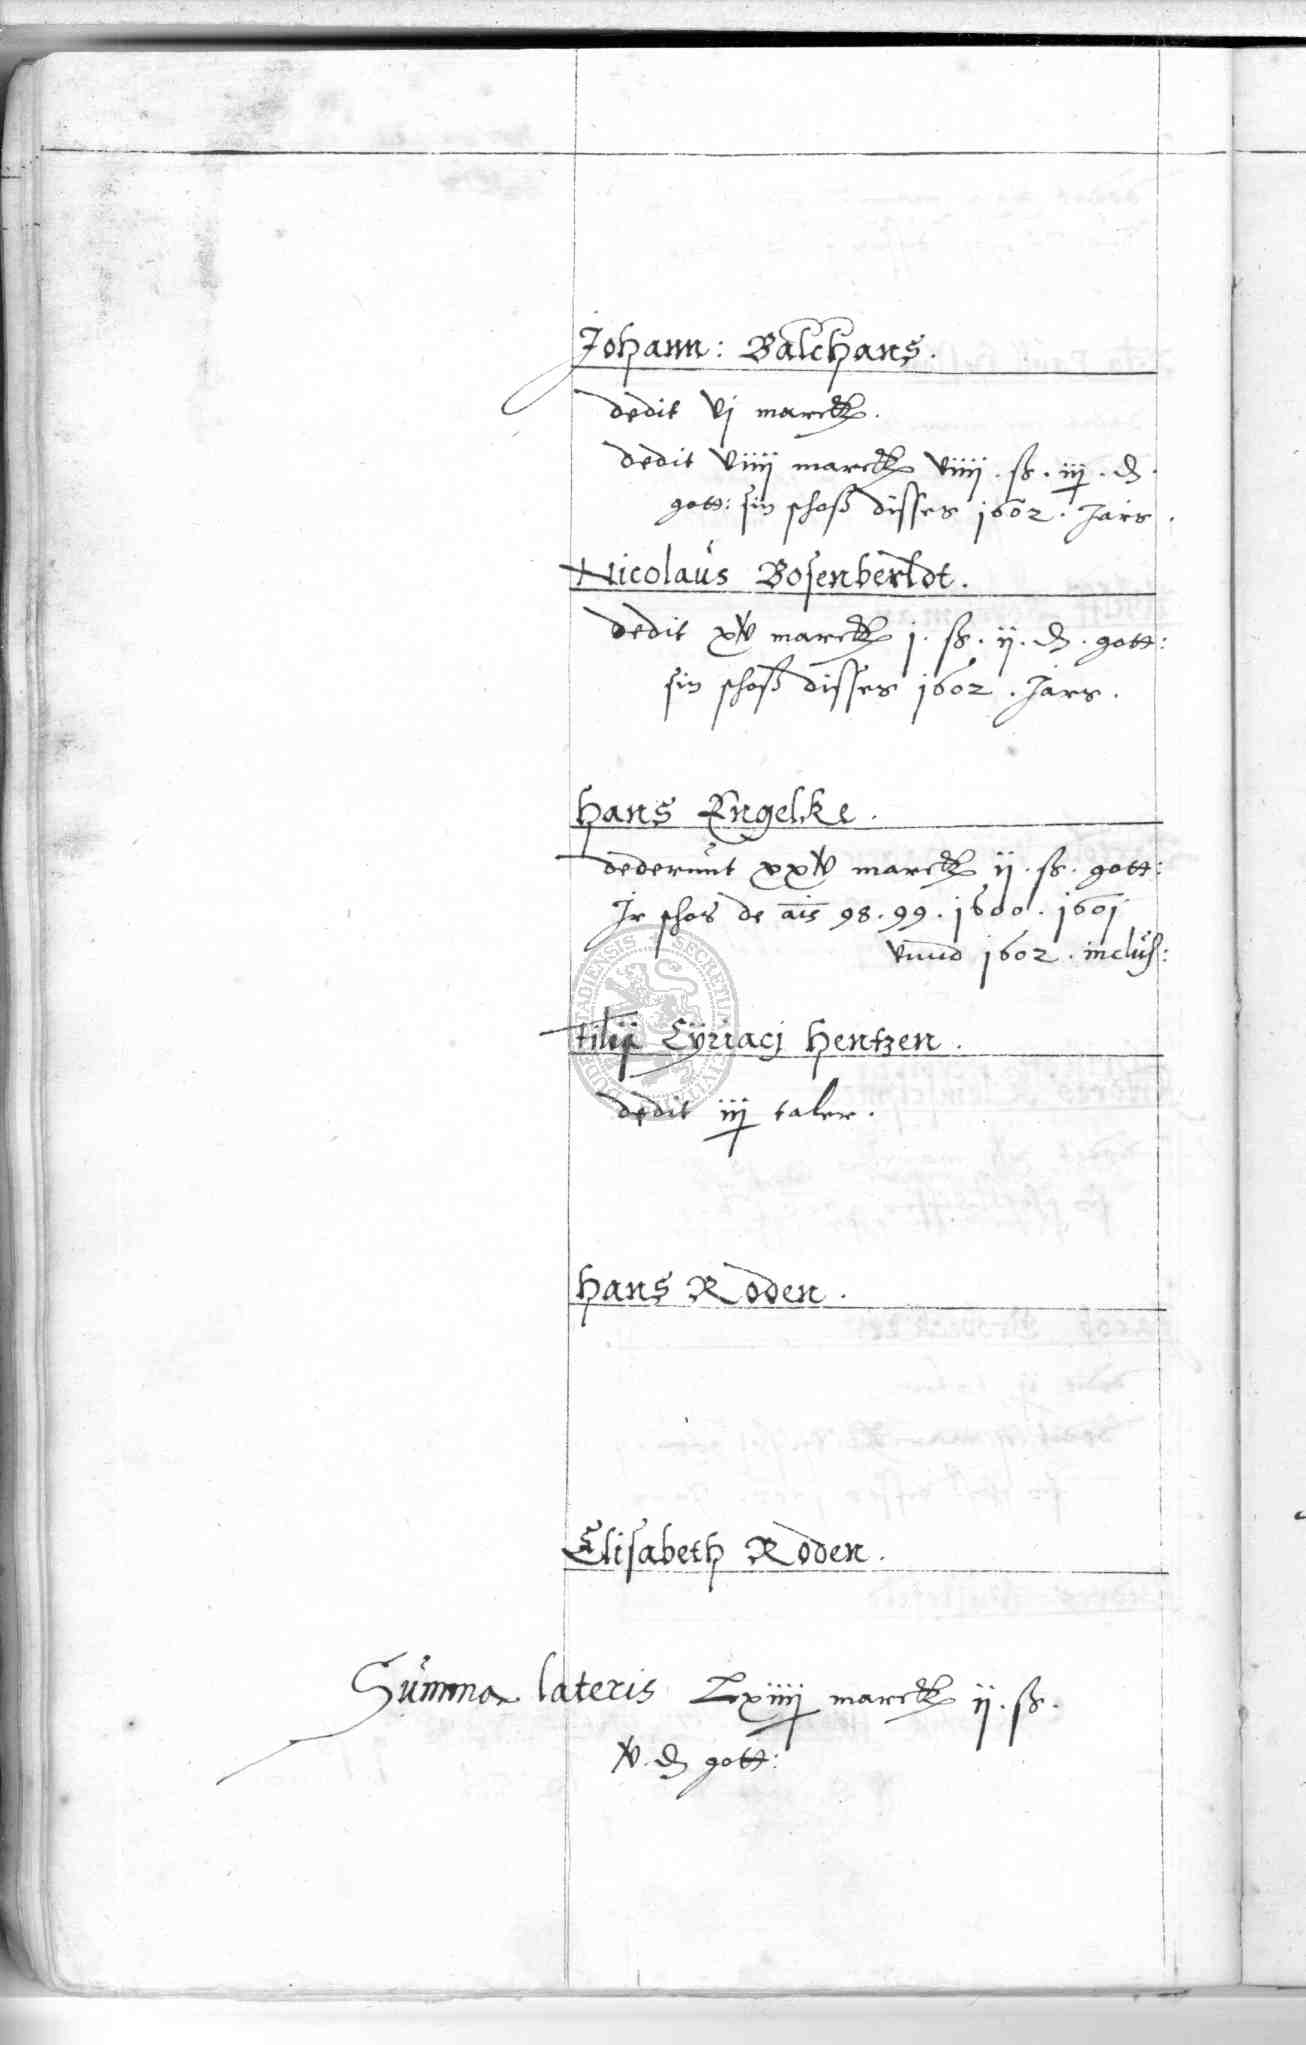 Johann: Balchans.
dedit vj marck.
dedit viiij marck viiij . ß . iij . ₰ .
gott: sin schoß disses 1602 . Jars .
Nicolaus Bosenberldt.
dedit xv marck j . ß . ij . ₰ . gott:
sin schoß disses 1602 . Jars .
Hans Engelke .
dederunt xxv marck ij . ß . gott:
Jr schos de ais 98 . 99 . 1600 . 1601
vnnd 1602 . inclus:
filij Cyriacj Hentzen .
dedit iij taler .
Hans Roden .
Elisabeth Roden .
Summa lateris Lxiiij marck ij . ß .
v . ₰ gott: